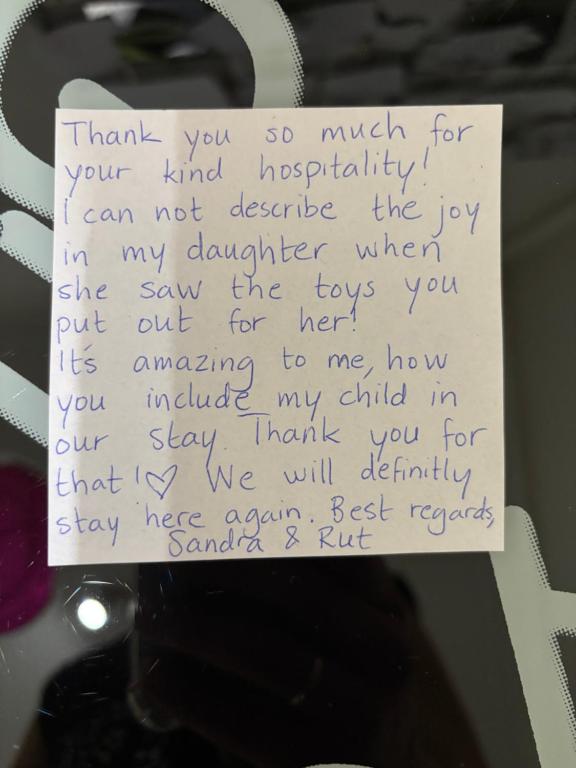 Thank you so much for
your kind hospitality!
I can not describe the joy
in my daughter when
she saw the toys you
put out for her!
It's amazing to me, how
you include my child in
our stay. Thank you for
that!♡ We will definitly
stay here again. Best regards,
Sandra & Rut